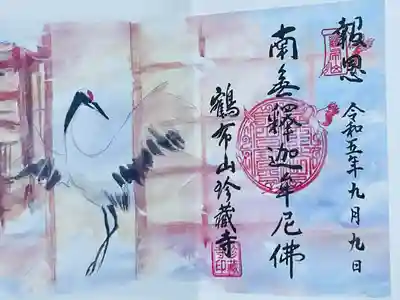 報恩
令和五年九月九日
南無釋迦牟尼佛
鶴布山珍藏寺